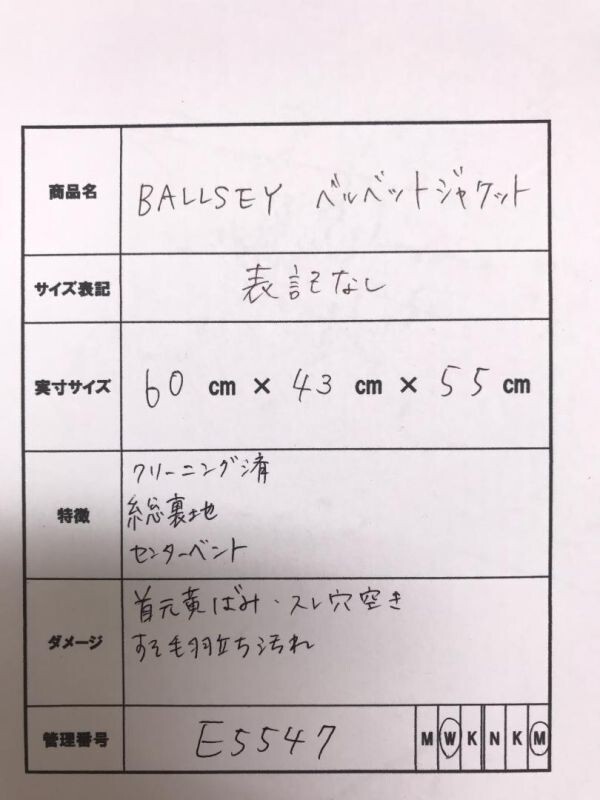 商品名 BALLSEY ベルベットジャケット
サイズ表記 表記なし
実寸サイズ 60 cm × 43 cm × 55 cm
特徴 クリーニング済
総裏地
センターベント
ダメージ 首元黄ばみ・スレ穴空き
すそ毛羽立ち汚れ
管理番号 E5547 M W K N K M